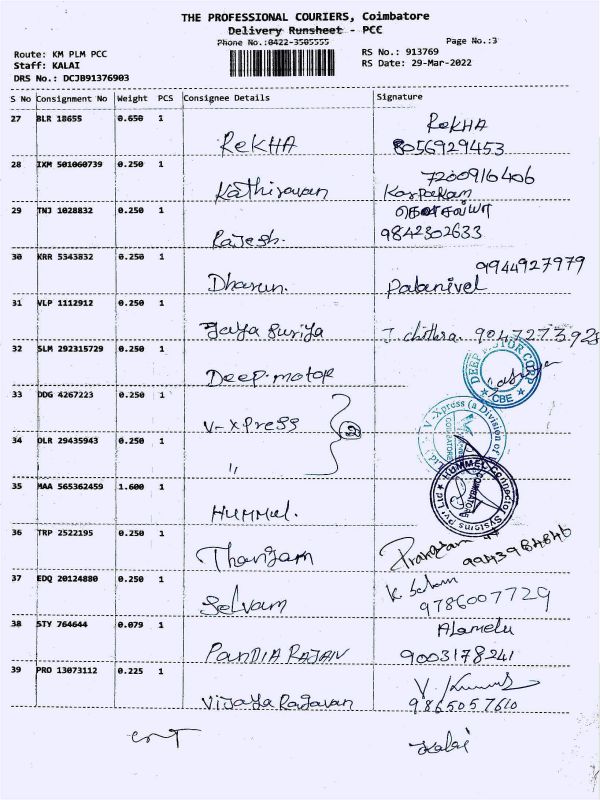 THE PROFESSIONAL COURIERS, Coimbatore
Delivery Runsheet - PCC
Phone No.:0422-3505555
Page No.:3
Route: KM PLM PCC
RS No.: 913769
Staff: KALAI
RS Date: 29-Mar-2022
DRS No.: DCJB91376903
S No Consignment No Weight PCS Consignee Details Signature
27 BLR 18655 0.650 1
REKHA
REKHA
8056929453
28 IXM 501060739 0.250 1
7200916406
Kathiravan
Karpakam
29 TNJ 1028832 0.250 1
கௌசல்யா
Rajesh.
9842302633
30 KRR 5343832 0.250 1
9944927979
Dharun.
Palanivel
31 VLP 1112912 0.250 1
Jaya Suriya
J. chithra. 9047273928
32 SLM 292315729 0.250 1
Deep-motor
DEEP MOTOR CORP
CBE
33 DDG 4267223 0.250 1
V-XPress
V-Xpress (a Division of
COIMBATORE
34 DLR 29435943 0.250 1
"
35 MAA 565362459 1.600 1
HUMMUL.
HUMMEL Connector Systems Pvt Ltd
COIMBATORE
36 TRP 2522195 0.250 1
Thangam
9943984846
37 EDQ 20124880 0.250 1
Selvam
9786007729
38 STY 764644 0.079 1
Alamelu
PANDIA RAJAN
9003178241
39 PRO 13073112 0.225 1
Vijaya Ragavan
9865057610
Kalai